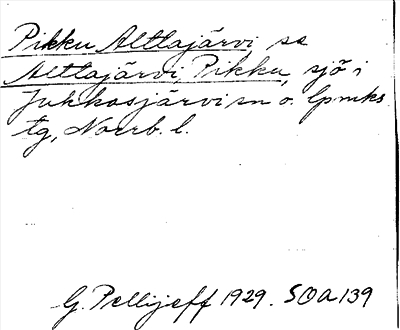 Pikku Alttajärvi, se
Alttajärvi, Pikku, sjö i
Jukkasjärvi sn o. lpmks
tg, Norrb. l.
G. Pellijeff 1929. SOA 139